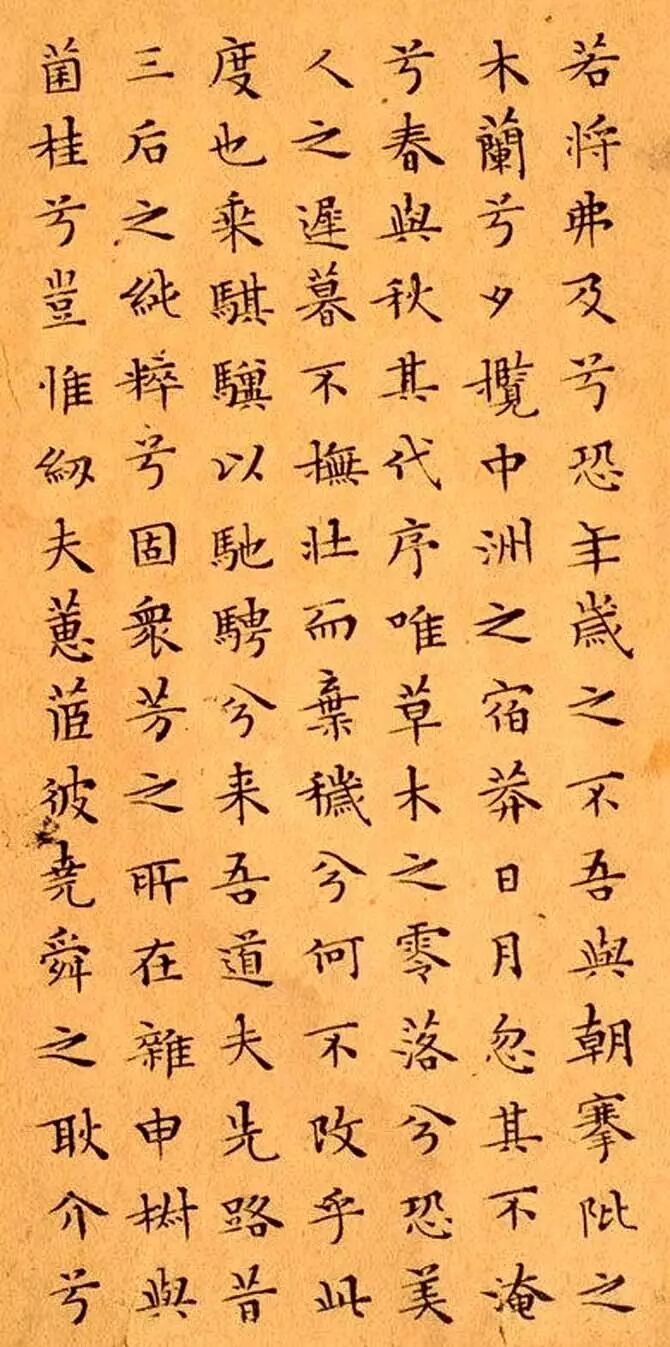 若将弗及兮恐年歲之不吾與朝搴阰之
木蘭兮夕攬中洲之宿莽日月忽其不淹
兮春與秋其代序唯草木之零落兮恐美
人之遲暮不撫壮而棄穢兮何不改乎此
度也乘騏驥以馳騁兮来吾道夫先路昔
三后之純粹兮固衆芳之所在雜申椒與
菌桂兮豈惟紉夫蕙茝彼堯舜之耿介兮